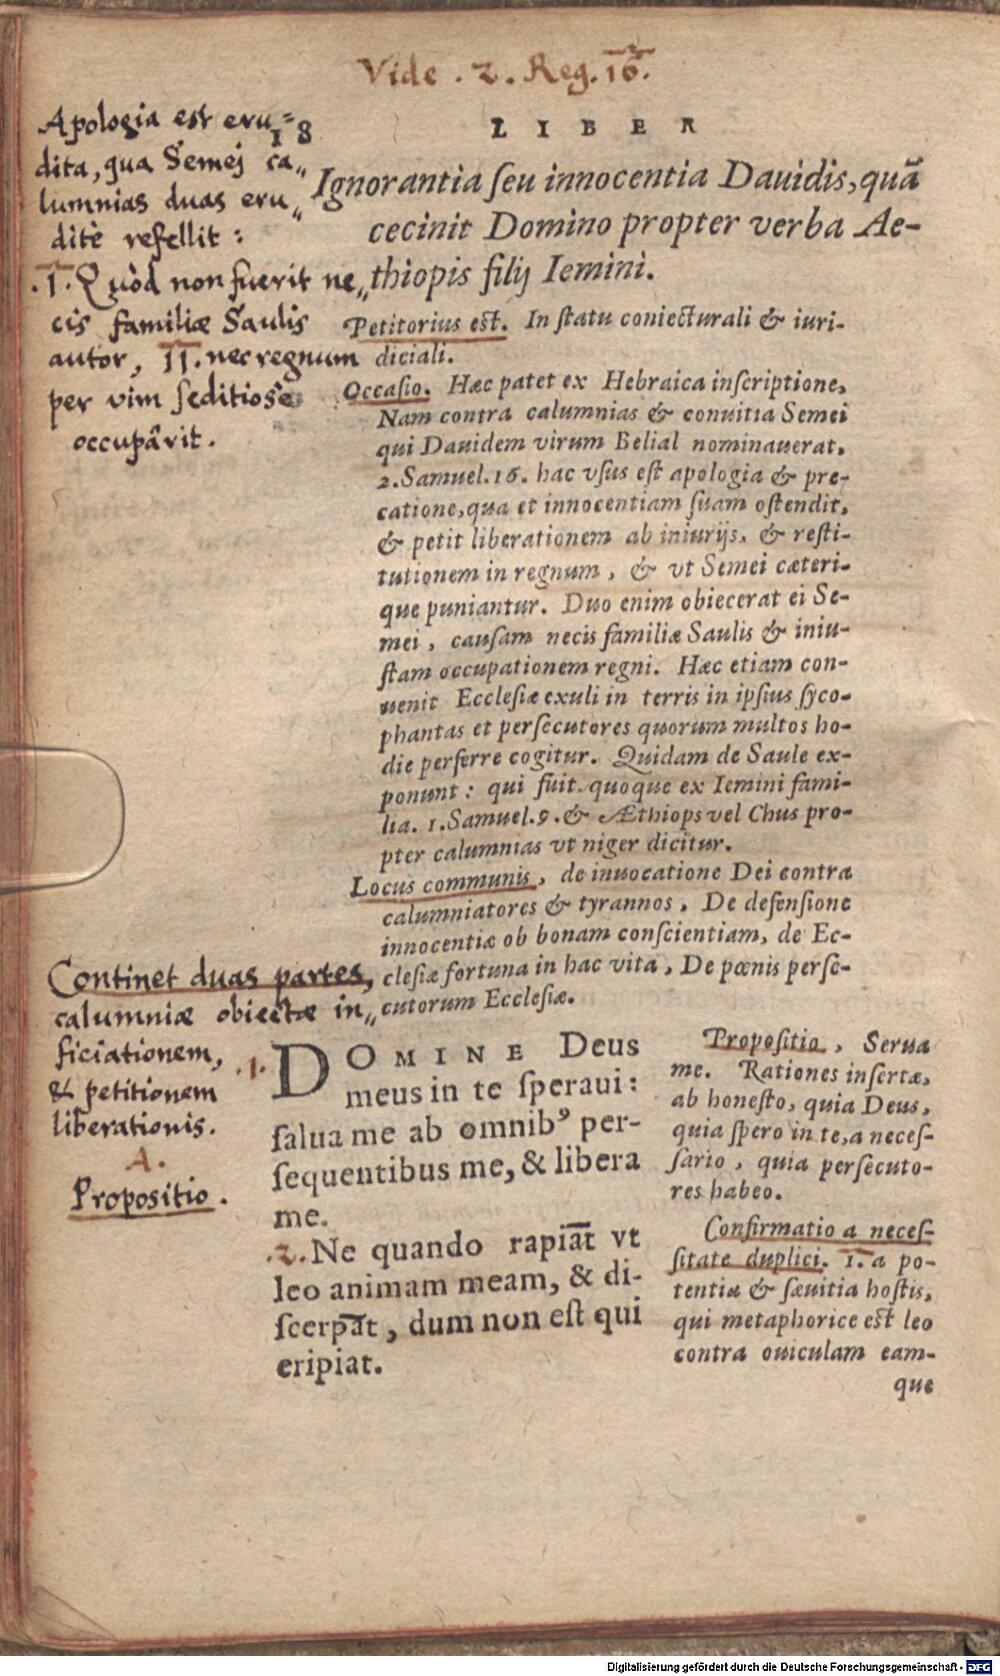 Vide . 2 . Reg. 16.
18
LIBER
Apologia est eru=
dita, qua Semej ca„
lumnias duas eru„
dite refellit :
.I. Quòd non fuerit ne„
cis familiæ Saulis
autor, II. nec regnum
per vim seditiose
occupârit.
Ignorantia ſeu innocentia Dauidis, quā
cecinit Domino propter verba Ae-
thiopis filij Iemini.
Petitorius est. In ſtatu coniecturali & iuri-
diciali.
Occaſio. Hæc patet ex Hebraica inſcriptione,
Nam contra calumnias & conuitia Semei
qui Dauidem virum Belial nominauerat,
2. Samuel. 16. hac vſus eſt apologia & pre-
catione, qua et innocentiam ſuam oſtendit,
& petit liberationem ab iniurijs, & reſti-
tutionem in regnum, & vt Semei cæteri-
que puniantur. Duo enim obiecerat ei Se-
mei, cauſam necis familiæ Saulis & iniu-
ſtam occupationem regni. Hæc etiam con-
uenit Eccleſiæ exuli in terris in ipſius ſyco-
phantas et perſecutores quorum multos ho-
die perferre cogitur. Quidam de Saule ex-
ponunt: qui fuit quoque ex Iemini fami-
lia. 1. Samuel. 9. & Æthiops vel Chus pro-
pter calumnias vt niger dicitur.
Locus communis, de inuocatione Dei contra
calumniatores & tyrannos, De defenſione
innocentiæ ob bonam conſcientiam, de Ec-
cleſiæ fortuna in hac vita, De pœnis perſe-
cutorum Eccleſiæ.
Continet duas partes,
calumniæ obiectæ in„
ficiationem,
& petitionem
liberationis.
A.
Propositio .
.1. DOMINE Deus
meus in te ſperaui:
ſalua me ab omnibꝰ per-
ſequentibus me, & libera
me.
.2. Ne quando rapiāt vt
leo animam meam, & di-
ſcerpāt, dum non eſt qui
eripiat.
Propoſitio, Serua
me. Rationes inſertæ,
ab honeſto, quia Deus,
quia ſpero in te, a neceſ-
ſario, quia perſecuto-
res habeo.
Confirmatio a neceſ-
ſitate duplici. 1. a po-
tentia & ſæuitia hoſtis,
qui metaphorice eſt leo
contra ouiculam eam-
que
Digitalisierung gefördert durch die Deutsche Forschungsgemeinschaft - DFG